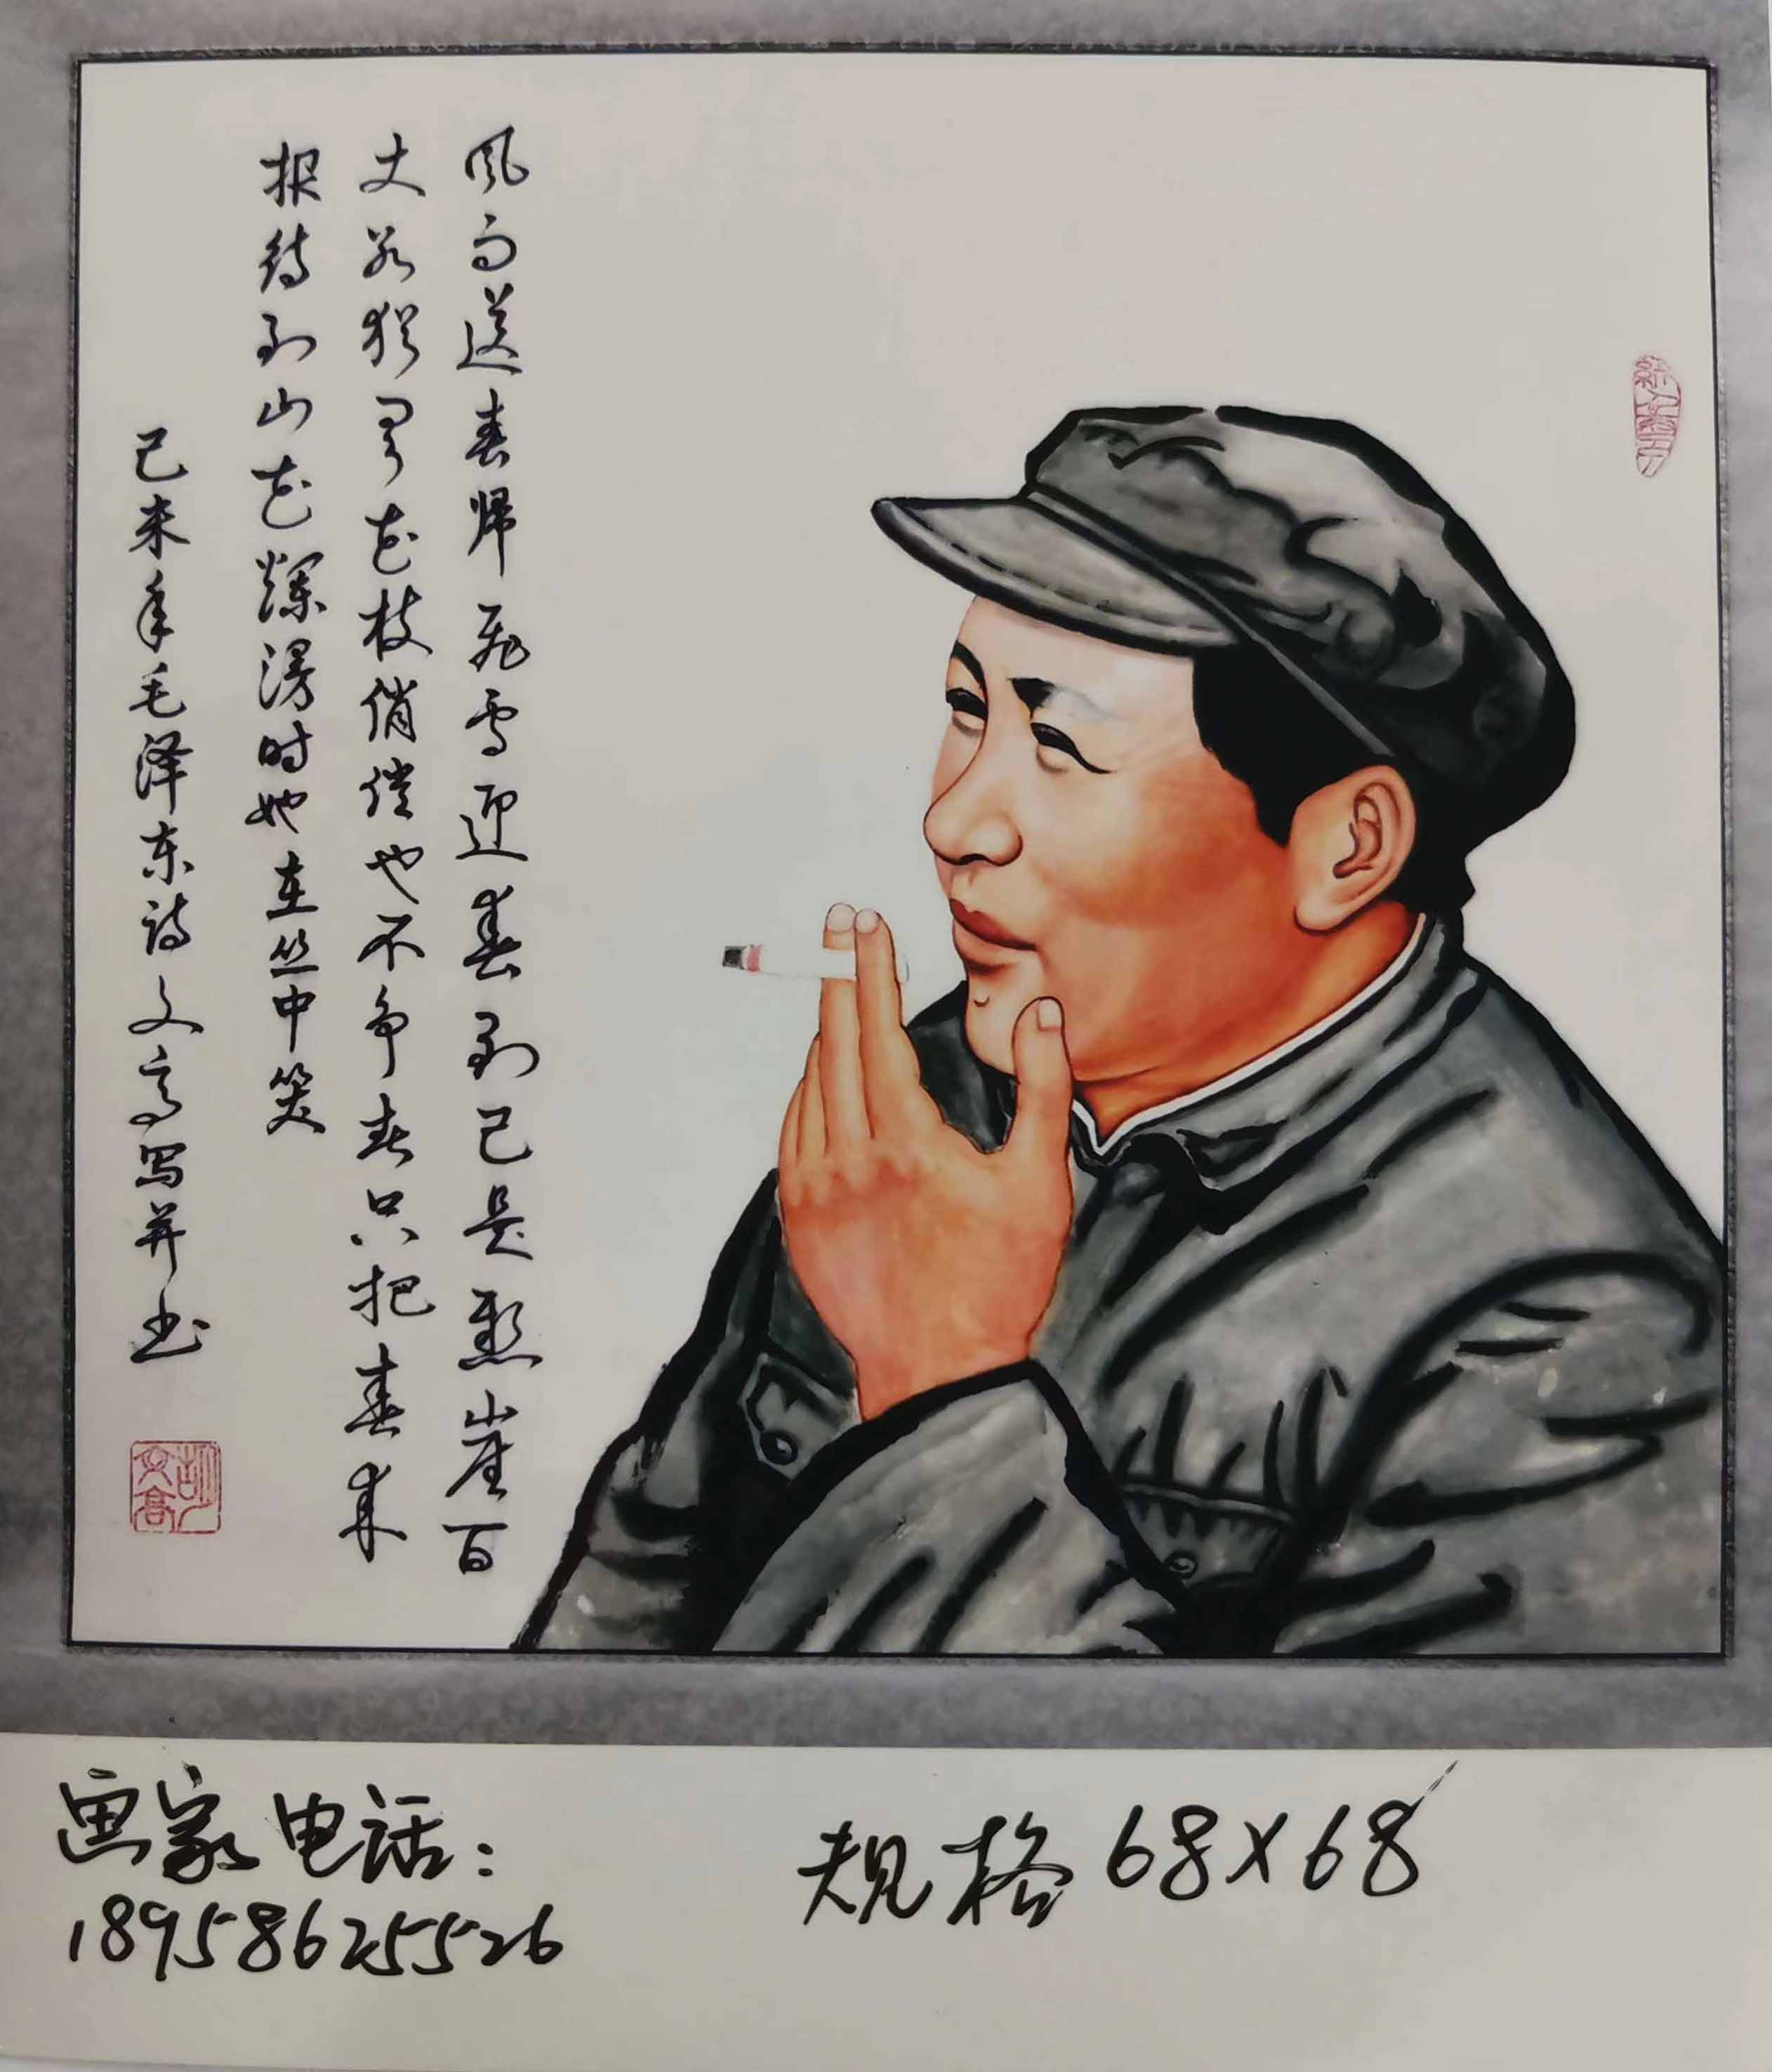 风雨送春归飞雪迎春到已是悬崖百
丈冰犹有花枝俏俏也不争春只把春来
报待到山花烂漫时她在丛中笑
己未年毛泽东诗文高写并书
胡文高
画家电话：
18958625526
规格68X68